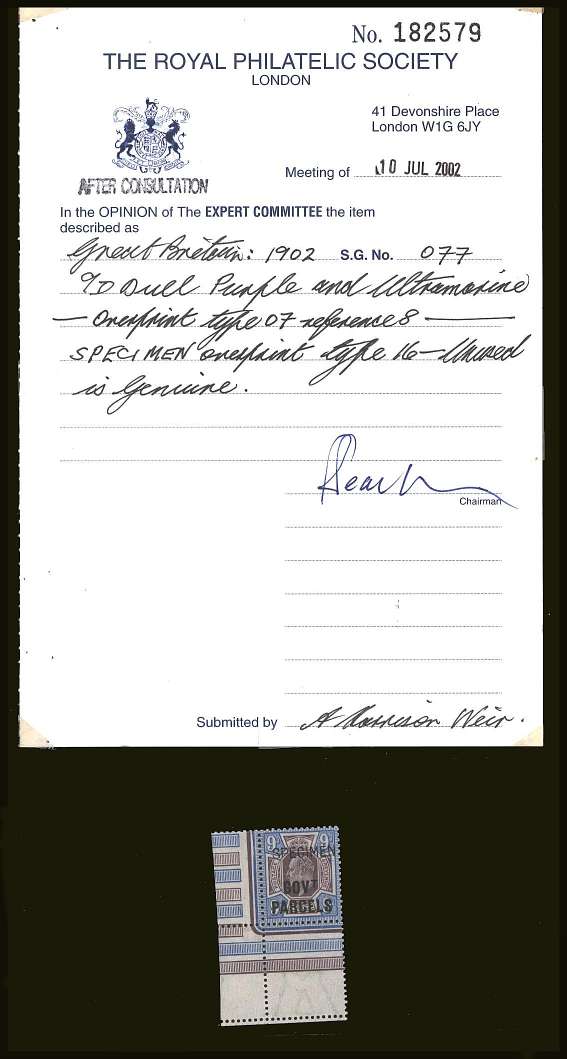 No. 182579
THE ROYAL PHILATELIC SOCIETY
LONDON
41 Devonshire Place
London W1G 6JY
AFTER CONSULTATION
Meeting of 10 JUL 2002
In the OPINION of The EXPERT COMMITTEE the item
described as
Great Britain: 1902 S.G. No. 077
9D Dull Purple and Ultramarine
— Overprint type 07 reference 8 —
SPECIMEN overprint type 16 — Unused
is Genuine.
Chairman
Submitted by A Harrison Weir.
9
SPECIMEN
GOVT
PARCELS